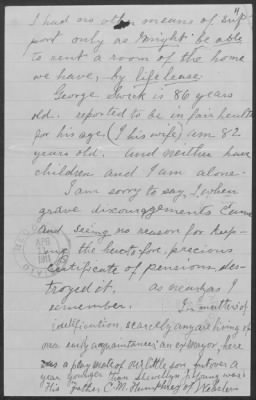 I had no other means of sup-
port only as might be able
to rent a room of the home
we have, by life lease.
George Swick is 86 years
old. reported to be in fair health
for his age. (I his wife) am 82
years old. And neither have
children and I am alone.
I am sorry to say, when
grave discouragements came
and seeing no reason for keep-
ing the heretofore, precious
certificate of pension, des-
troyed it. as near as I
remember. In matters of
idetification, scarcely any are living, of
our early acquaintances, an ex Mayor, here
was a playmate of our little son, but over a
year younger than Llewellyn, a young man
His Father C. M. Humphrey of